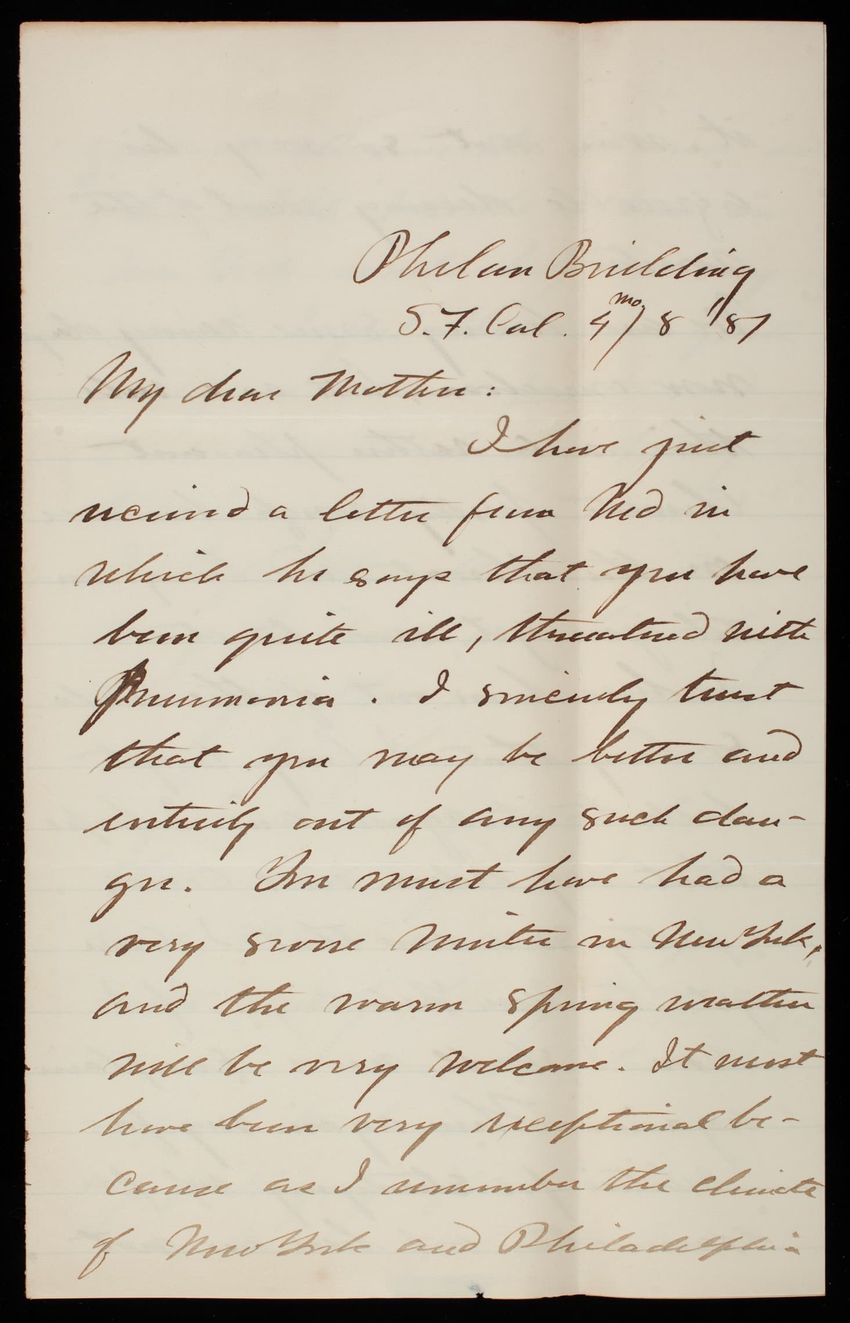 Phelan Building
S.F. Cal. 4mo/8 '87
My dear Mother:
I have just
received a letter from Ned in
which he says that you have
been quite ill, threatened with
Pneumonia. I sincerely trust
that you may be better and
entirely out of any such dan-
ger. You must have had a
very severe winter in New York,
and the warm spring weather
will be very welcome. It must
have been very exceptional be-
cause as I remember the climate
of New York and Philadelphia